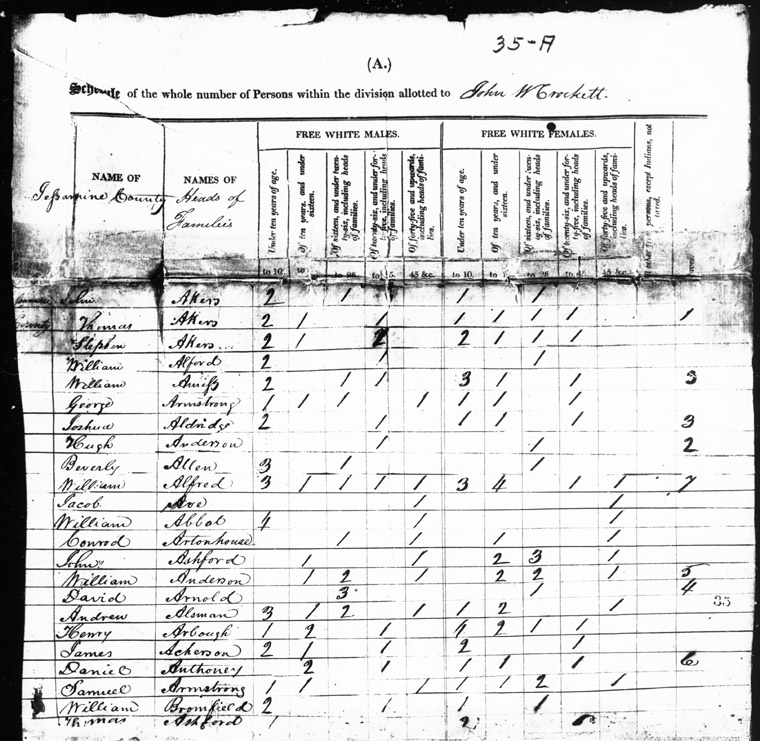 35-A
(A.)
Schedule of the whole number of Persons within the division allotted to John W Crockett.
FREE WHITE MALES. FREE WHITE FEMALES.
NAME OF NAMES OF
Jessamine County Heads of Families
Under ten years of age.
Of ten years, and under sixteen.
Of sixteen, and under twenty-six, including heads of families.
Of twenty-six, and under forty-five, including heads of families.
Of forty-five and upwards, including heads of families.
Under ten years of age.
Of ten years, and under sixteen.
Of sixteen, and under twenty-six, including heads of families.
Of twenty-six, and under forty-five, including heads of families.
Of forty-five and upwards, including heads of families.
persons, except Indians, not
to 10 to 45 &c. to 10 to 26 to 45 45 &c.
John Akers 2 1 1 1
County Thomas Akers 2 1 1 1 1 1 1 1
Stephen Akers 2 1 2 2 1 1 1
William Alford 2 1 1
William Amiss 2 1 1 3 1 1 3
George Armstrong 1 1 1 1 1 1 1
Joshua Aldridge 2 1 1 1 1 3
Hugh Anderson 1 1 2
Beverly Allen 3 1 1
William Alfred 3 1 1 1 1 3 4 1 1 7
Jacob Ave 1 1
William Abbot 4 1 1
Conrod Artonhouse 1 1 1 1
John Ashford 1 1 2 3 1
William Anderson 1 2 1 2 2 1 5
David Arnold 3 1 4
Andrew Alsman 3 1 2 1 1 2 1
35
Henry Arbough 1 2 1 4 2 1 1
James Acherson 2 1 1 2 1
Daniel Anthoney 2 1 1 1 1 6
Samuel Armstrong 1 1 1 1 1 2 1
William Bromfield 2 1 1 1
Thomas Ashford 1 2 1